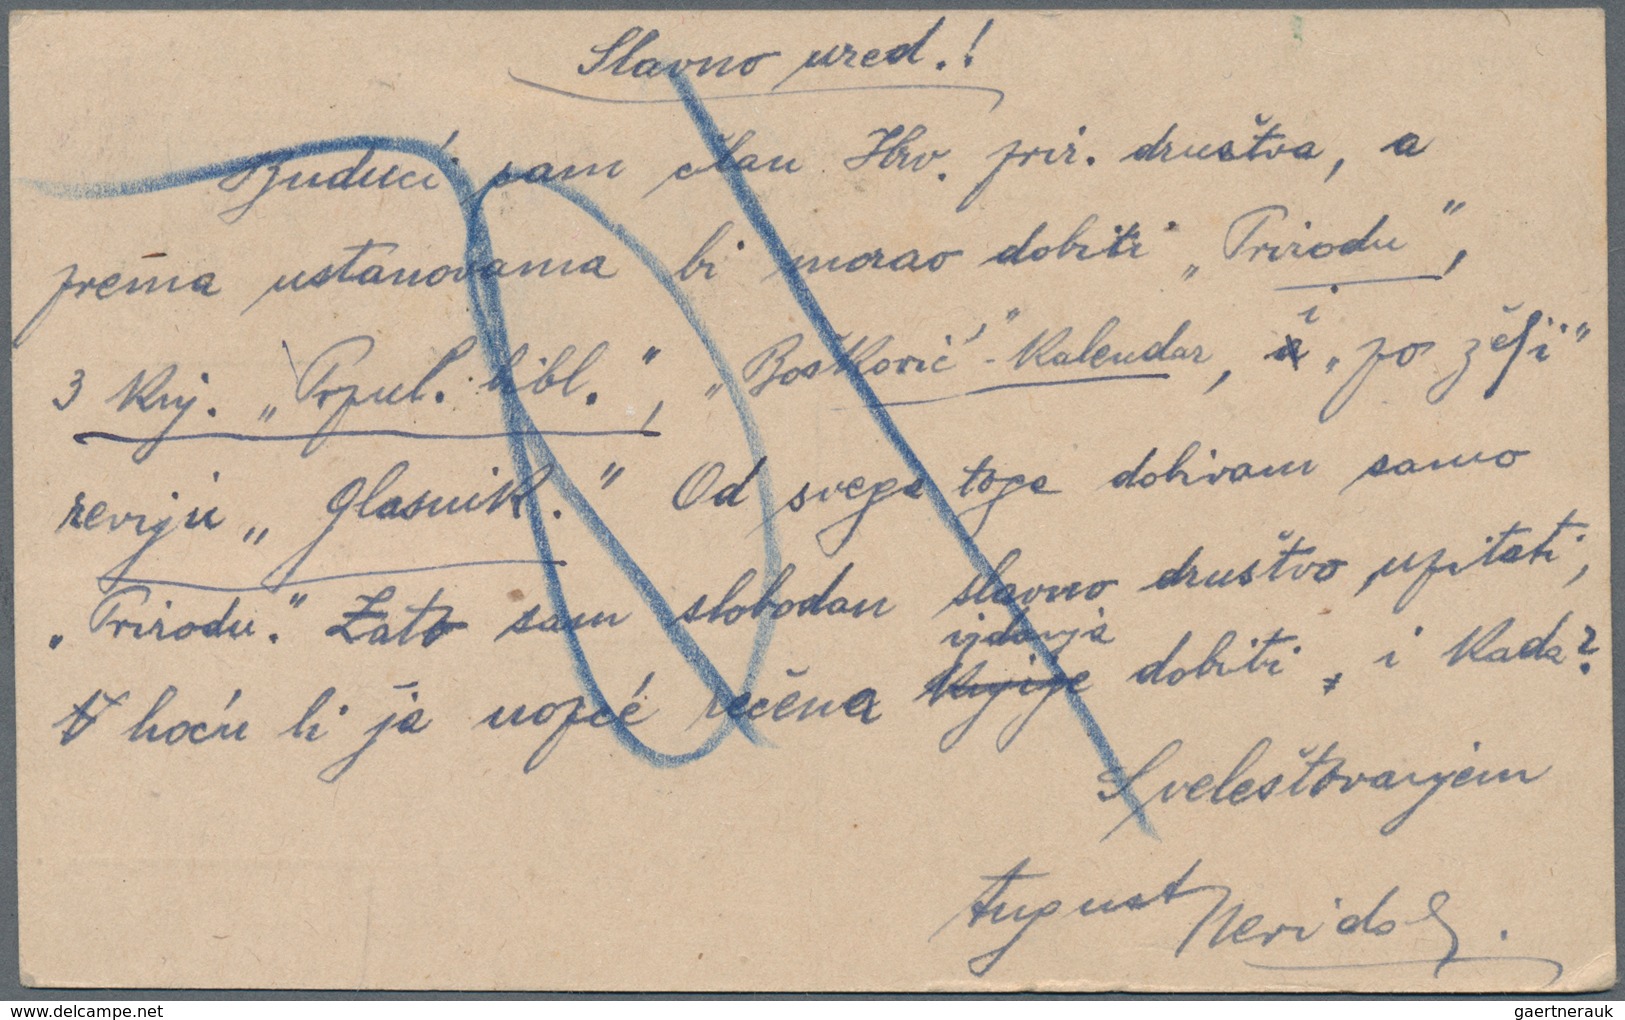 Slavno ured.!
Budući sam član Hrv. prir. društva, a
prema ustanovama bi morao dobiti „Prirodu“,
3 knj. „Prpul. bibl.“, „Bošković“-kalendar, i „po želji“
reviju „Glasnik.“ Od svega toga dobivam samo
„Prirodu.“ Zato sam slobodan slavno društvo upitati,
izdanja
hoću li ja uopće rečena knjige dobiti, i kada?
S veleštovanjem
August
gaertnerauk